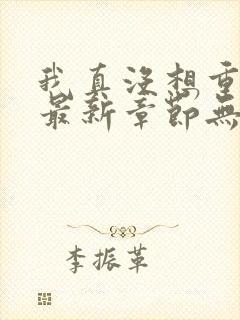 我真没想重
最新章节无
李振革